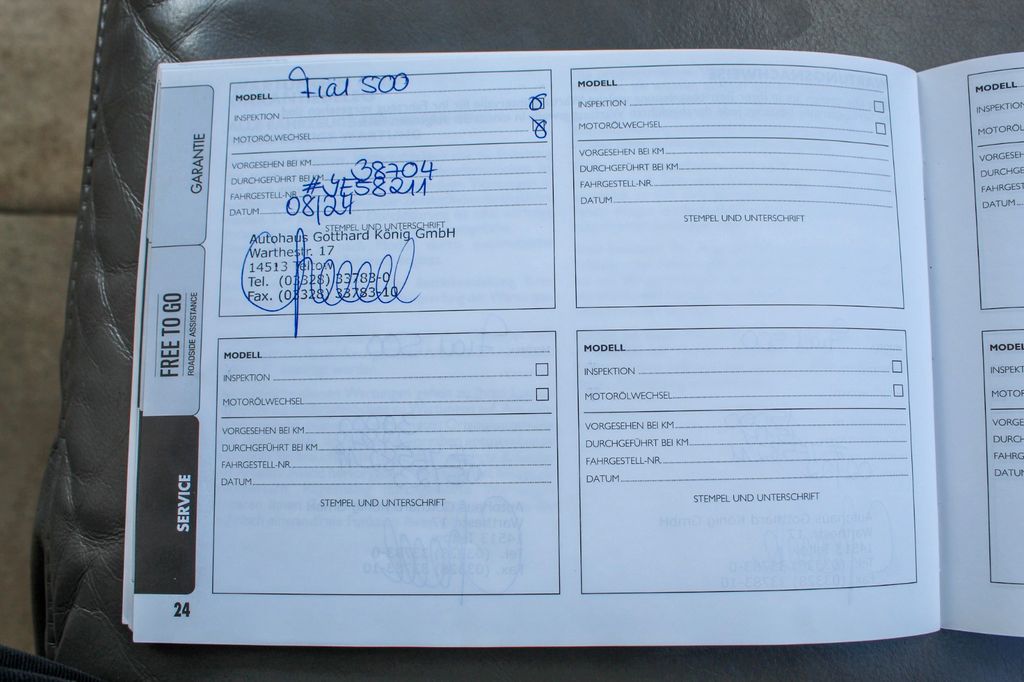 GARANTIE
FREE TO GO
ROADSIDE ASSISTANCE
SERVICE
24
MODELL Fiat 500
INSPEKTION
MOTORÖLWECHSEL
VORGESEHEN BEI KM
DURCHGEFÜHRT BEI KM 38704
FAHRGESTELL-NR. #JE58211
DATUM 08/21
STEMPEL UND UNTERSCHRIFT
Autohaus Gotthard König GmbH
Warthestr. 17
14513 Teltow
Tel. (03328) 33783-0
Fax. (03328) 33783-10
MODELL
INSPEKTION
MOTORÖLWECHSEL
VORGESEHEN BEI KM
DURCHGEFÜHRT BEI KM
FAHRGESTELL-NR.
DATUM
STEMPEL UND UNTERSCHRIFT
MODELL
INSPEKTION
MOTORÖLWECHSEL
VORGESEHEN BEI KM
DURCHGEFÜHRT BEI KM
FAHRGESTELL-NR.
DATUM
STEMPEL UND UNTERSCHRIFT
MODELL
INSPEKTION
MOTORÖLWECHSEL
VORGESEHEN BEI KM
DURCHGEFÜHRT BEI KM
FAHRGESTELL-NR.
DATUM
STEMPEL UND UNTERSCHRIFT